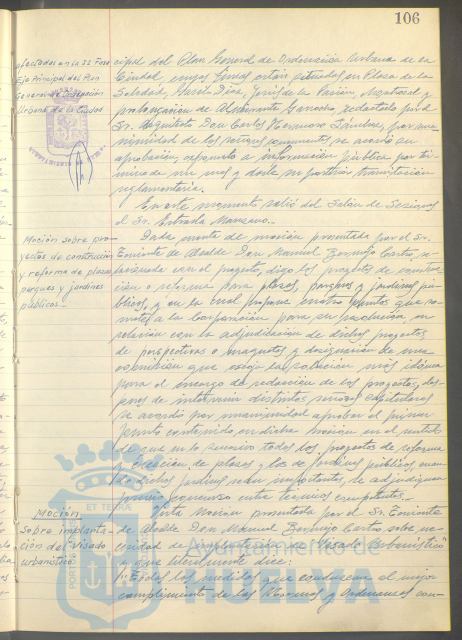 106
afectados en la II Fase
Eje Principal del Plan
General de Ordenación
Urbana de la Ciudad
cipal del Plan General de Ordenación Urbana de la
Ciudad cuyas fincas están situadas en Plaza de la
Soledad, García Díaz, Jesús de la Pasión, y
prolongación de Almirante Garrocho, redactado por el
Sr. Arquitecto Don Carlos Hermoso Sánchez, por una-
nimidad de los señores concurrentes, se acordó su
aprobación, exponerlo a información pública por tér-
mino de un mes y darle su posterior tramitación
reglamentaria.
En este momento salió del Salón de Sesiones
el Sr. Estrada Manzano.
Moción sobre pro-
yectos de construcción
y reforma de plazas
parques y jardines
públicos.-
Dada cuenta de moción presentada por el Sr.
Teniente de Alcalde Don Manuel Bermejo Castro, re-
lacionada con el proyecto, digo los proyectos de construc-
ción o reforma para plazas, parques y jardines pú-
blicos, y en la cual propone cuatro puntos que so-
mete a la Corporación para su resolución, en
relación con la adjudicación de dichos proyectos
de perspectivas o maquetas y designación de una
comisión que escoja la solución más idónea
para el encargo de redacción de los proyectos, des-
pués de intervenir distintos señores capitulares
se acordó por unanimidad aprobar el primer
punto contenido en dicha moción en el sentido
de que en lo sucesivo todos los proyectos de reforma
y creación de plazas y los de jardines públicos cuan-
do dichos jardines sean importantes, se adjudiquen
previo concurso entre técnicos competentes.-
Moción
sobre implanta-
ción del Visado
urbanístico
Vista Moción presentada por el Sr. Teniente
de Alcalde Don Manuel Bermejo Castro sobre ne-
cesidad de implantación del "Visado Urbanístico"
y que literalmente dice:
"Todas las medidas que conduzcan al mejor
cumplimiento de las Normas y Ordenanzas con-
Ayuntamiento de
HUELVA